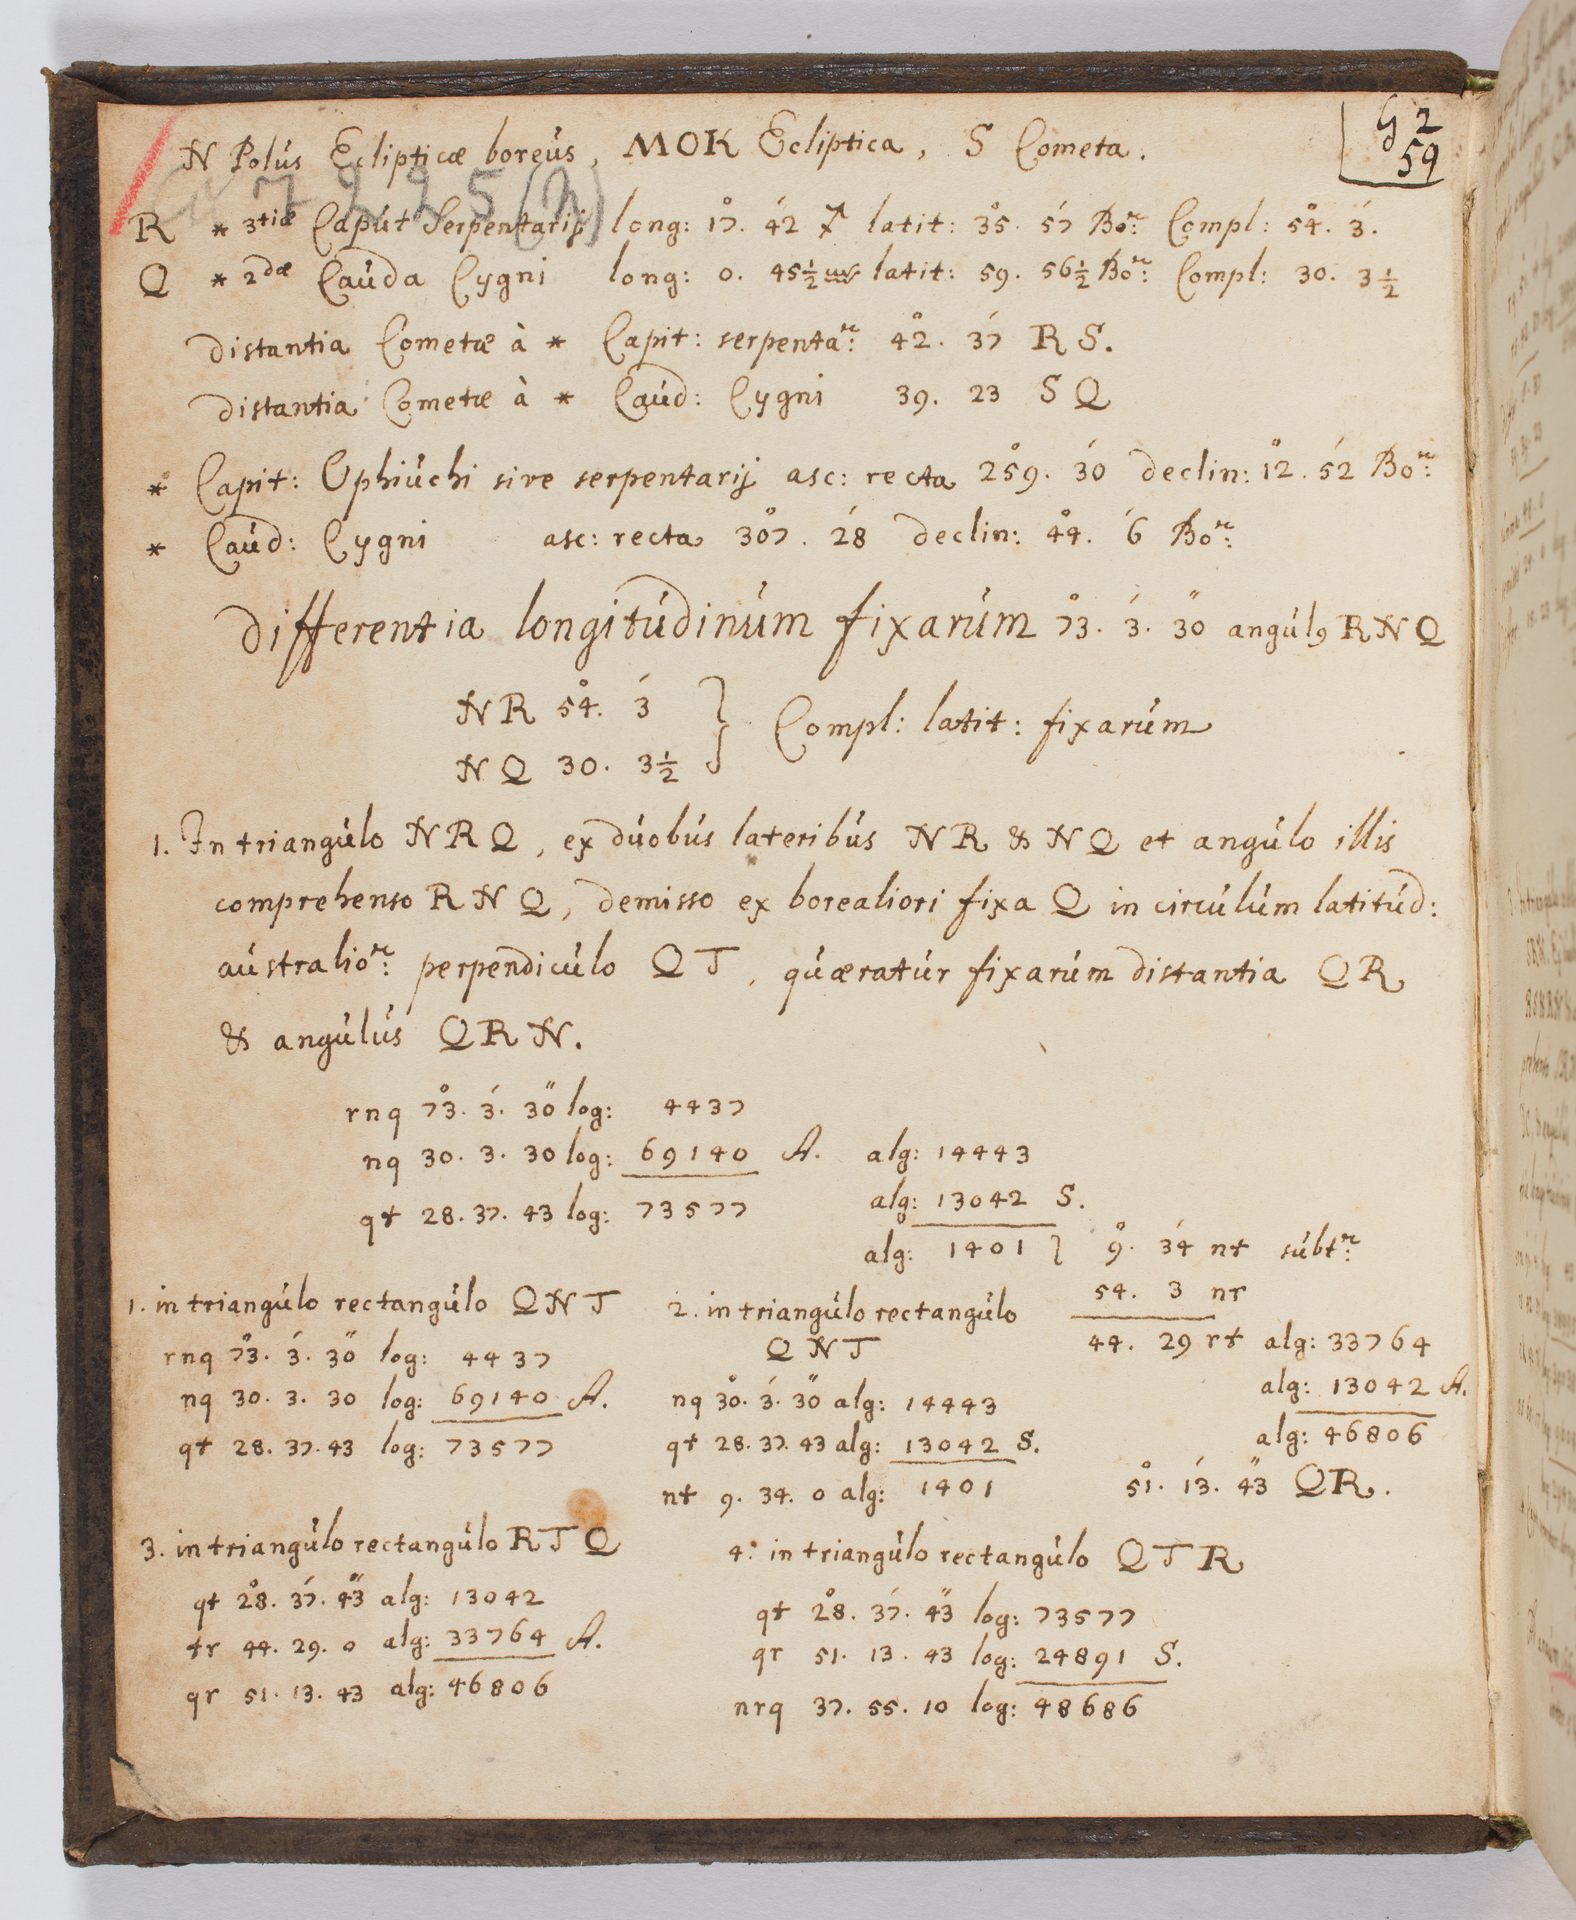 G 2
59
N Polús Eclipticæ boreús, MOK Ecliptica, S Cometa.
R * 3tiæ Capút Serpentarij long: 17°. 42' ♐ latit: 35°. 57' Bor: Compl: 54°. 3'.
Q * 2dæ Caúda Cygni long: 0. 45½ ♓ latit: 59. 56½ Bor: Compl: 30. 3½
distantia Cometæ à * Capit: serpentar: 42°. 37' R S.
distantia Cometæ à * Caúd: Cygni 39. 23 S Q
* Capit: Ophiúchi sive serpentarij asc: recta 259°. 30' declin: 12°. 52' Bor:
* Caúd: Cygni asc: recta 307°. 28' declin: 44°. 6' Bor:
Differentia longitúdinúm fixarúm 73°. 3'. 30" angúl9 R N Q
N R 54°. 3'
N Q 30. 3½ } Compl: latit: fixarúm
1. In triangúlo N R Q, ex dúobús lateribús N R & N Q et angúlo illis
comprehenso R N Q, demisso ex borealiori fixa Q in circúlúm latitúd:
aústralior: perpendicúlo Q T, qúæratúr fixarúm distantia Q R
& angúlús Q R N.
rnq 73°. 3'. 30" log: 4437
nq 30. 3. 30 log: 69140 A. alg: 14443
qt 28. 37. 43 log: 73577 alg: 13042 S.
alg: 1401 } 9°. 34' nt súbtr:
54. 3 nr
44. 29 rt alg: 33764
alg: 13042 A.
alg: 46806
51°. 13'. 43" QR.
1. in triangúlo rectangúlo Q N T
rnq 73°. 3'. 30" log: 4437
nq 30. 3. 30 log: 69140 A.
qt 28. 37. 43 log: 73577
2. in triangúlo rectangúlo
Q N T
nq 30°. 3'. 30" alg: 14443
qt 28. 37. 43 alg: 13042 S.
nt 9. 34. 0 alg: 1401
3. in triangúlo rectangúlo R T Q
qt 28°. 37'. 43" alg: 13042
tr 44. 29. 0 alg: 33764 A.
qr 51. 13. 43 alg: 46806
4. in triangúlo rectangúlo Q T R
qt 28°. 37'. 43" log: 73577
qr 51. 13. 43 log: 24891 S.
nrq 37. 55. 10 log: 48686